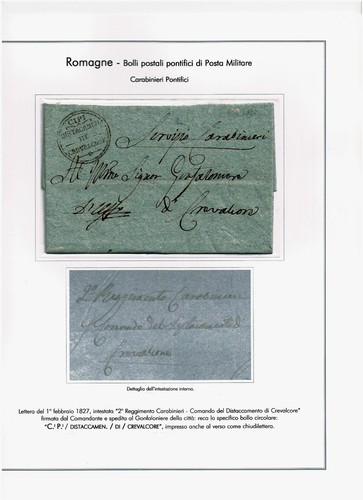 Romagne - Bolli postali pontifici di Posta Militare
Carabinieri Pontifici
DISTACCAMEN.
DI
CREVALCORE
Servizio Carabinieri
Al Signor Gonfaloniere
di Crevalcore
2° Reggimento Carabinieri
Comando del Distaccamento di
Crevalcore
Dettaglio dell'intestazione interna.
Lettera del 1° febbraio 1827, intestata "2° Reggimento Carabinieri - Comando del Distaccamento di Crevalcore"
firmata dal Comandante e spedita al Gonfaloniere della città: reca lo specifico bollo circolare:
"C.I P.I / DISTACCAMEN. / DI / CREVALCORE", impresso anche al verso come chiudilettera.